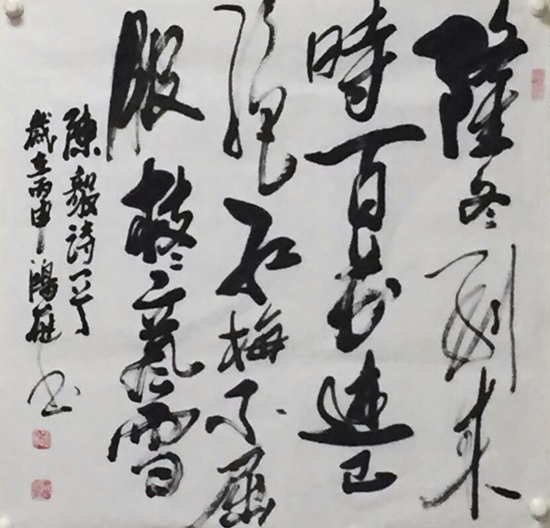 隆冬到来
時百花迹已
絕红梅不屈
服樹々立風雪
陳毅詩一首
歲在丙申鴻書